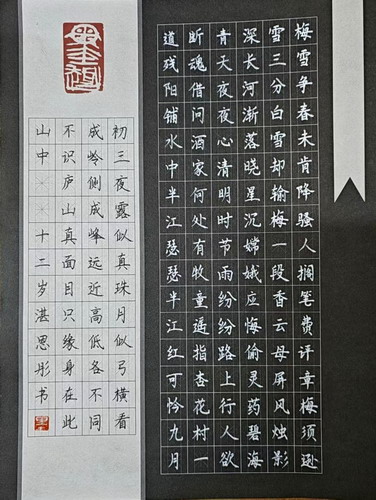 梅雪争春未肯降骚人搁笔费评章梅须逊
雪三分白雪却输梅一段香云母屏风烛影
深长河渐落晓星沉嫦娥应悔偷灵药碧海
青天夜夜心清明时节雨纷纷路上行人欲
断魂借问酒家何处有牧童遥指杏花村一
道残阳铺水中半江瑟瑟半江红可怜九月
初三夜露似真珠月似弓横看
成岭侧成峰远近高低各不同
不识庐山真面目只缘身在此
山中 十二岁湛思彤书